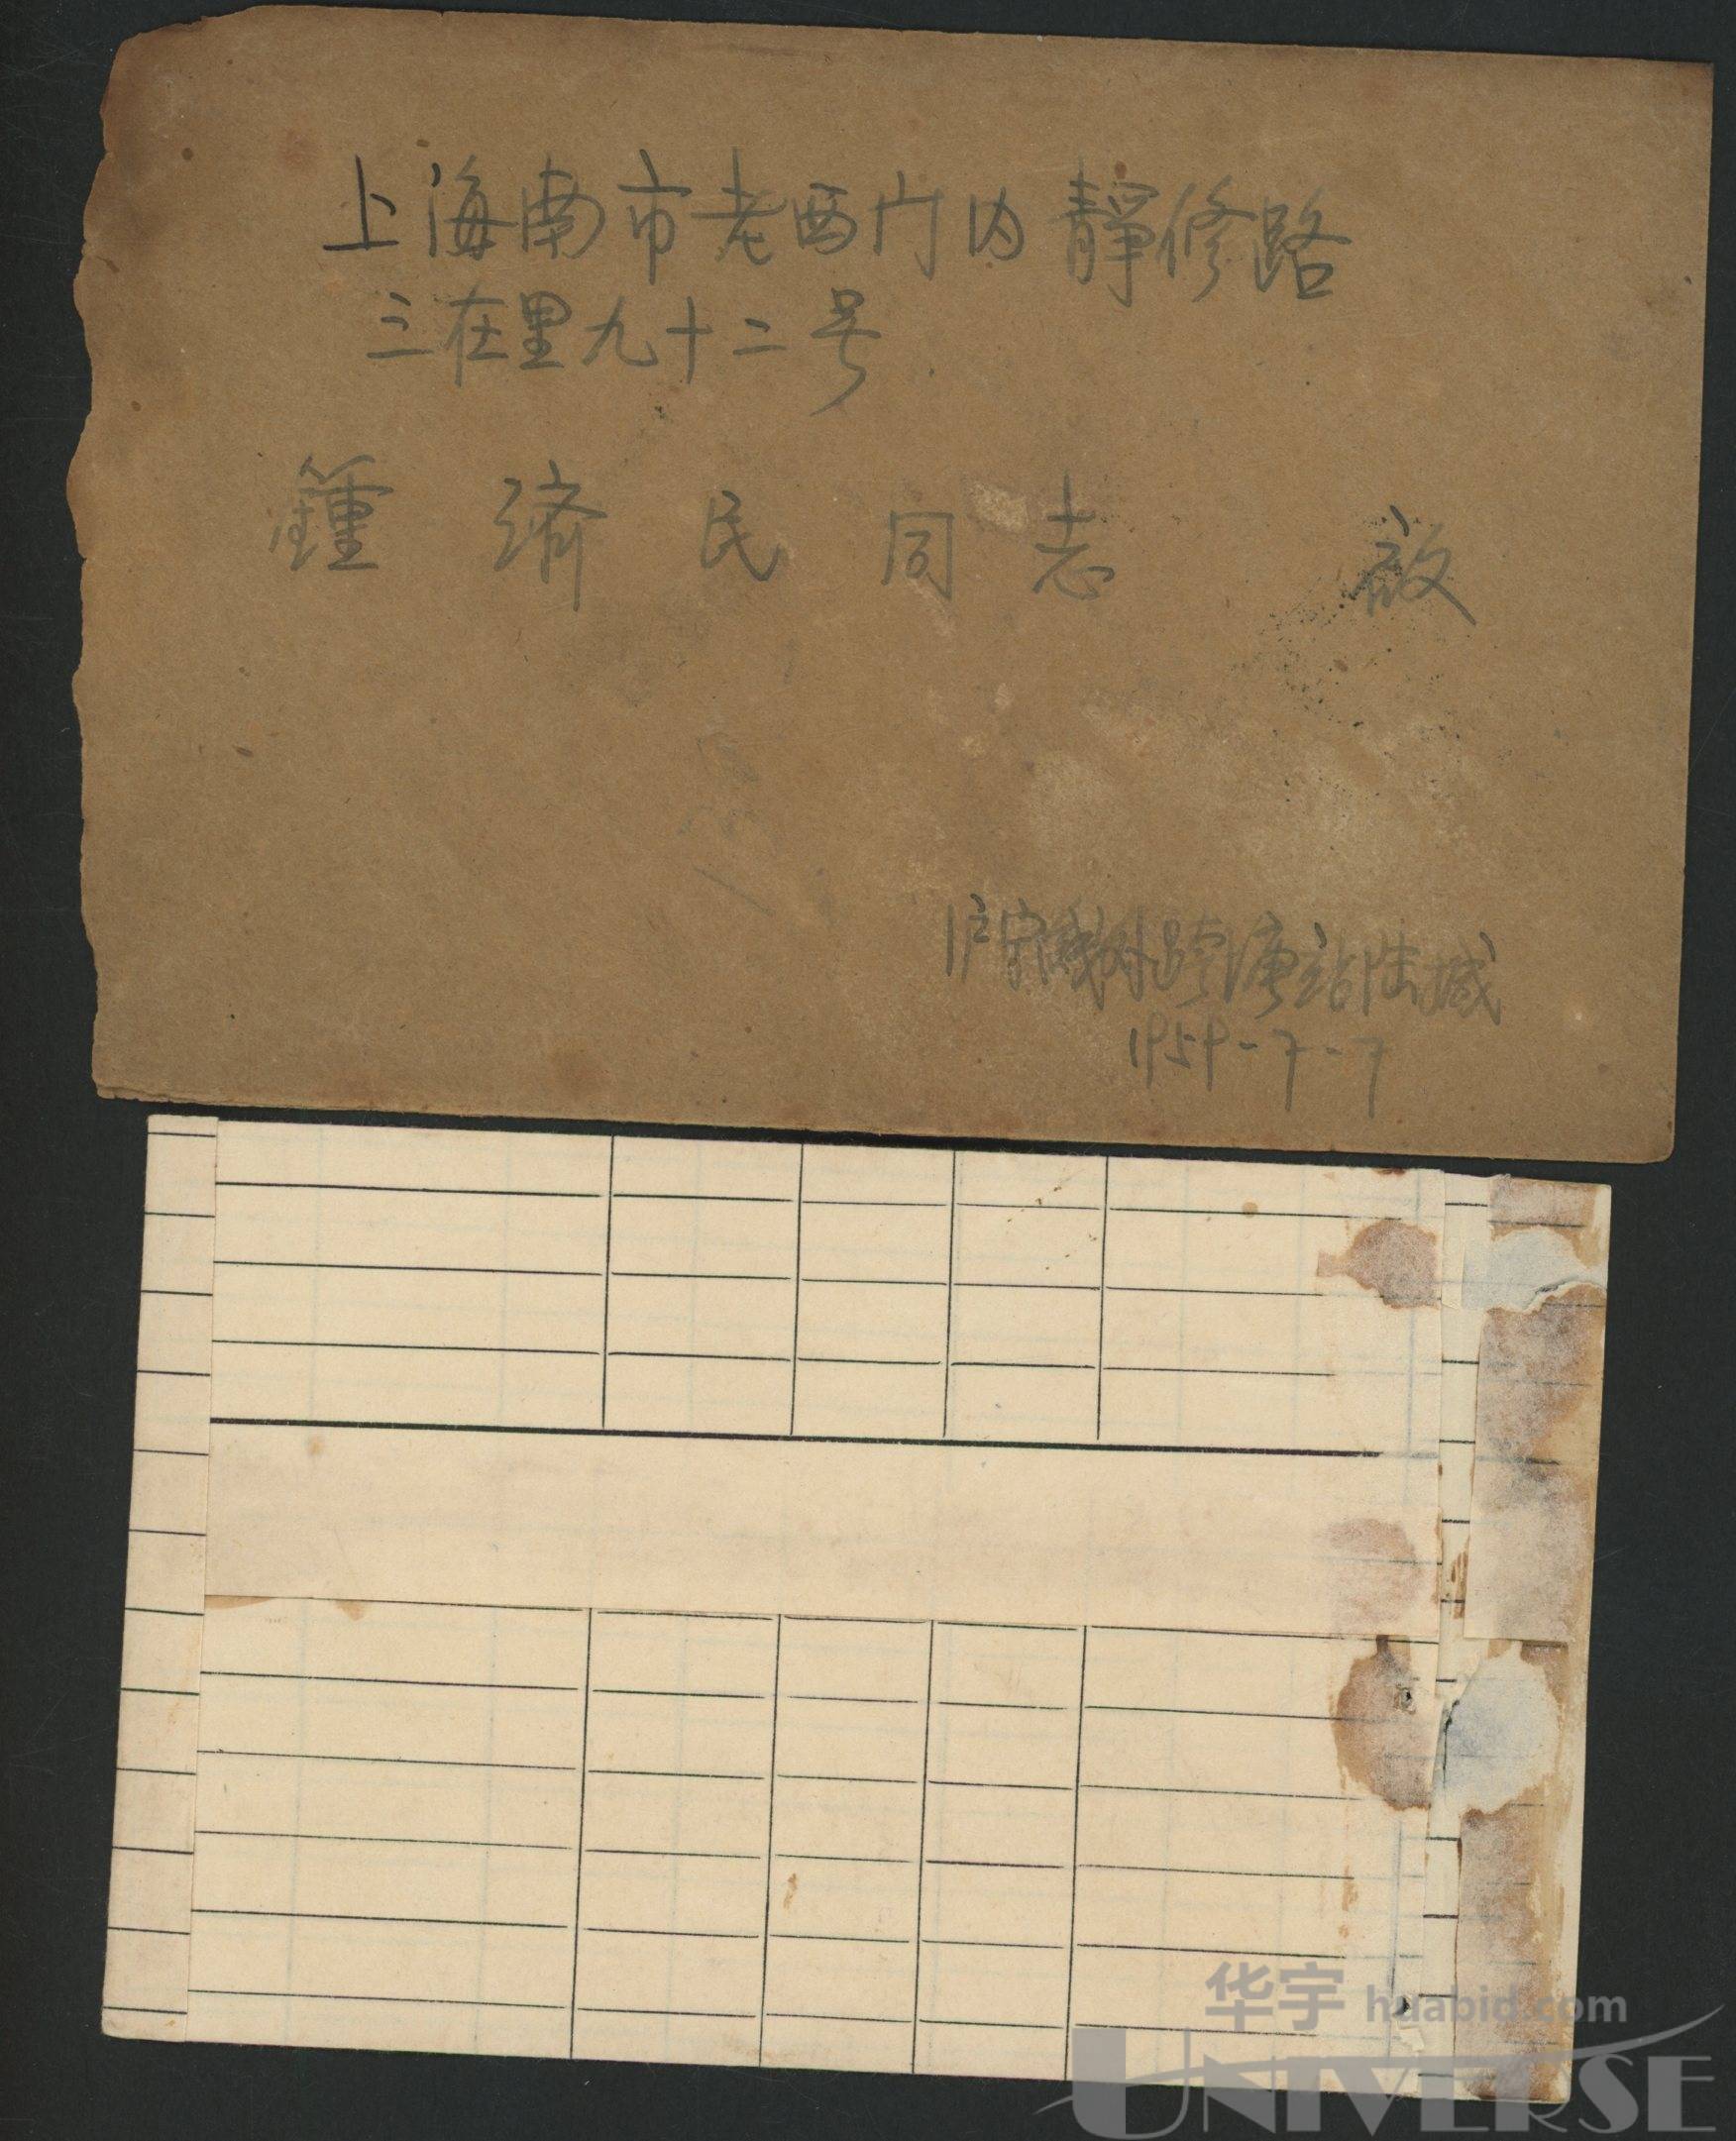 上海南市老西门内静修路
三在里九十二号
鍾济民同志 啟
沪宁线外跨塘站陆城
1959-7-7
华宇 huabid.com
UNIVERSE